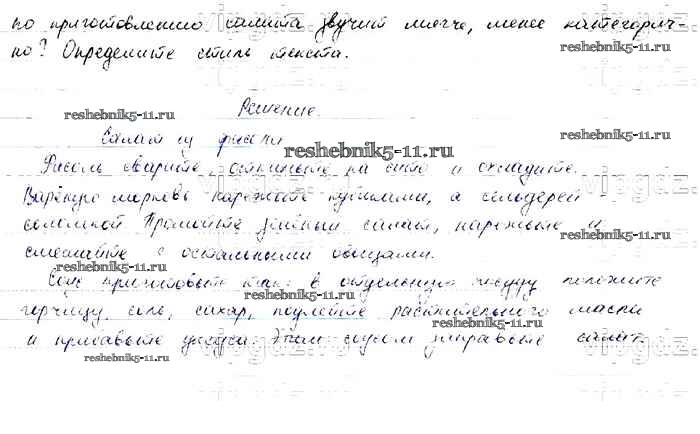 по приготовлению салата звучит мягче, менее категорич-
но? Определите стиль текста.
reshebnik5-11.ru
Решение.
reshebnik5-11.ru
Салат из фасоли
reshebnik5-11.ru
Фасоль сварите, откиньте на сито и охладите.
Варёную морковь нарежьте кубиками, а сельдерей -
соломкой. Промойте зелёный салат, нарежьте и
смешайте с остальными овощами.
reshebnik5-11.ru
Соус приготовьте так: в отдельную посуду положите
горчицу, соль, сахар, подлейте растительного масла
reshebnik5-11.ru
и прибавьте уксуса. Этим соусом заправьте салат.
reshebnik5-11.ru